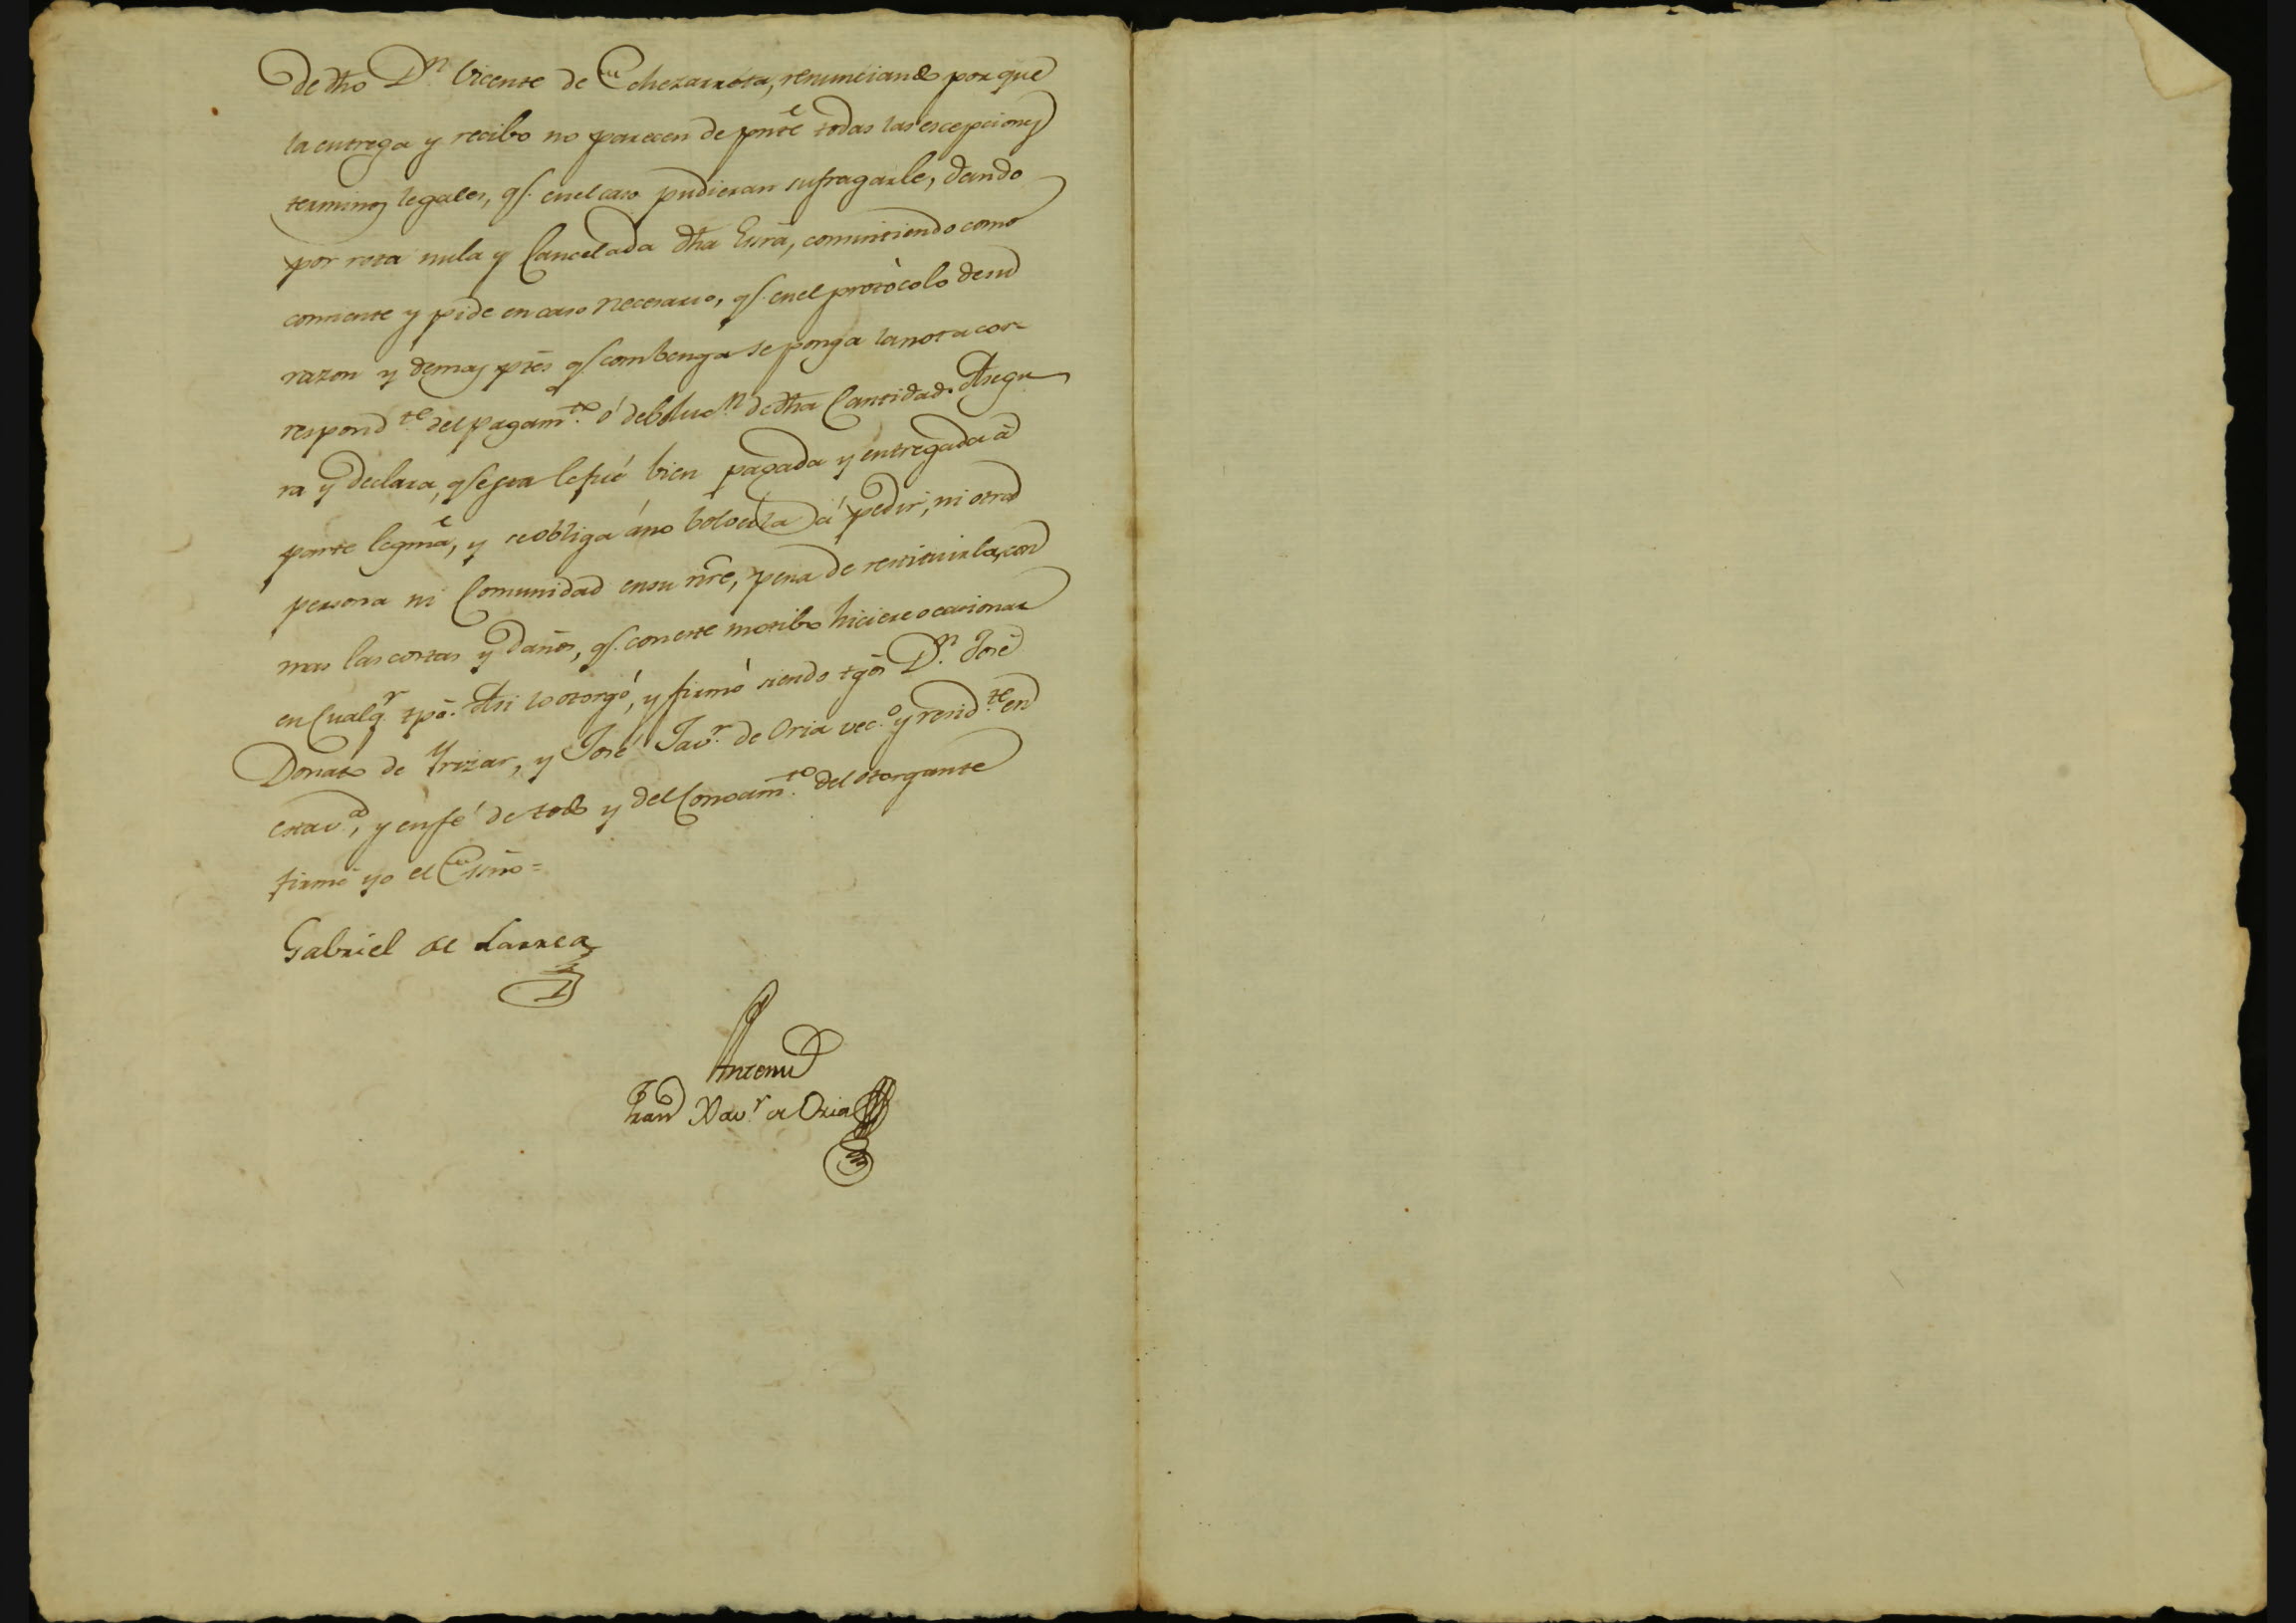 de dho Dn. Vicente de Echezarreta, renunciando por que
la entrega y recibo no parecen de pnte todas las escepciones
terminos legales, q. en el caso pudieran sufragarle, dando
por rota nula y Cancelada dha Esrã, consintiendo como
consiente y pide en caso necesario, q. en el protòcolo de su
razon y demas ptes q. combenga se ponga la nota cor-
respondte. del pagamto. ó deboluon. de dha Cantidad. Asegu
ra y declara, q. esta le fué bien pagada y entregada á
parte legma, y se obliga áno bolverla á pedir, ni otra
persona ni Comunidad en su nre, pena de restituirla, con
mas las costas y daños, q. con este motibo hiciere ocasionar
en Cualqr. tpõ. Asi lo otorgó, y firmó siendo tgos Dn. José
Donato de Yrizar, y José Javr. de Oria veco. y residte en
esta va., y en fé de todo y del Conocimto. del otorgante
firmé yo el Essno =
Gabriel de Larrea
Antemi
Fran Xavr. de Oria